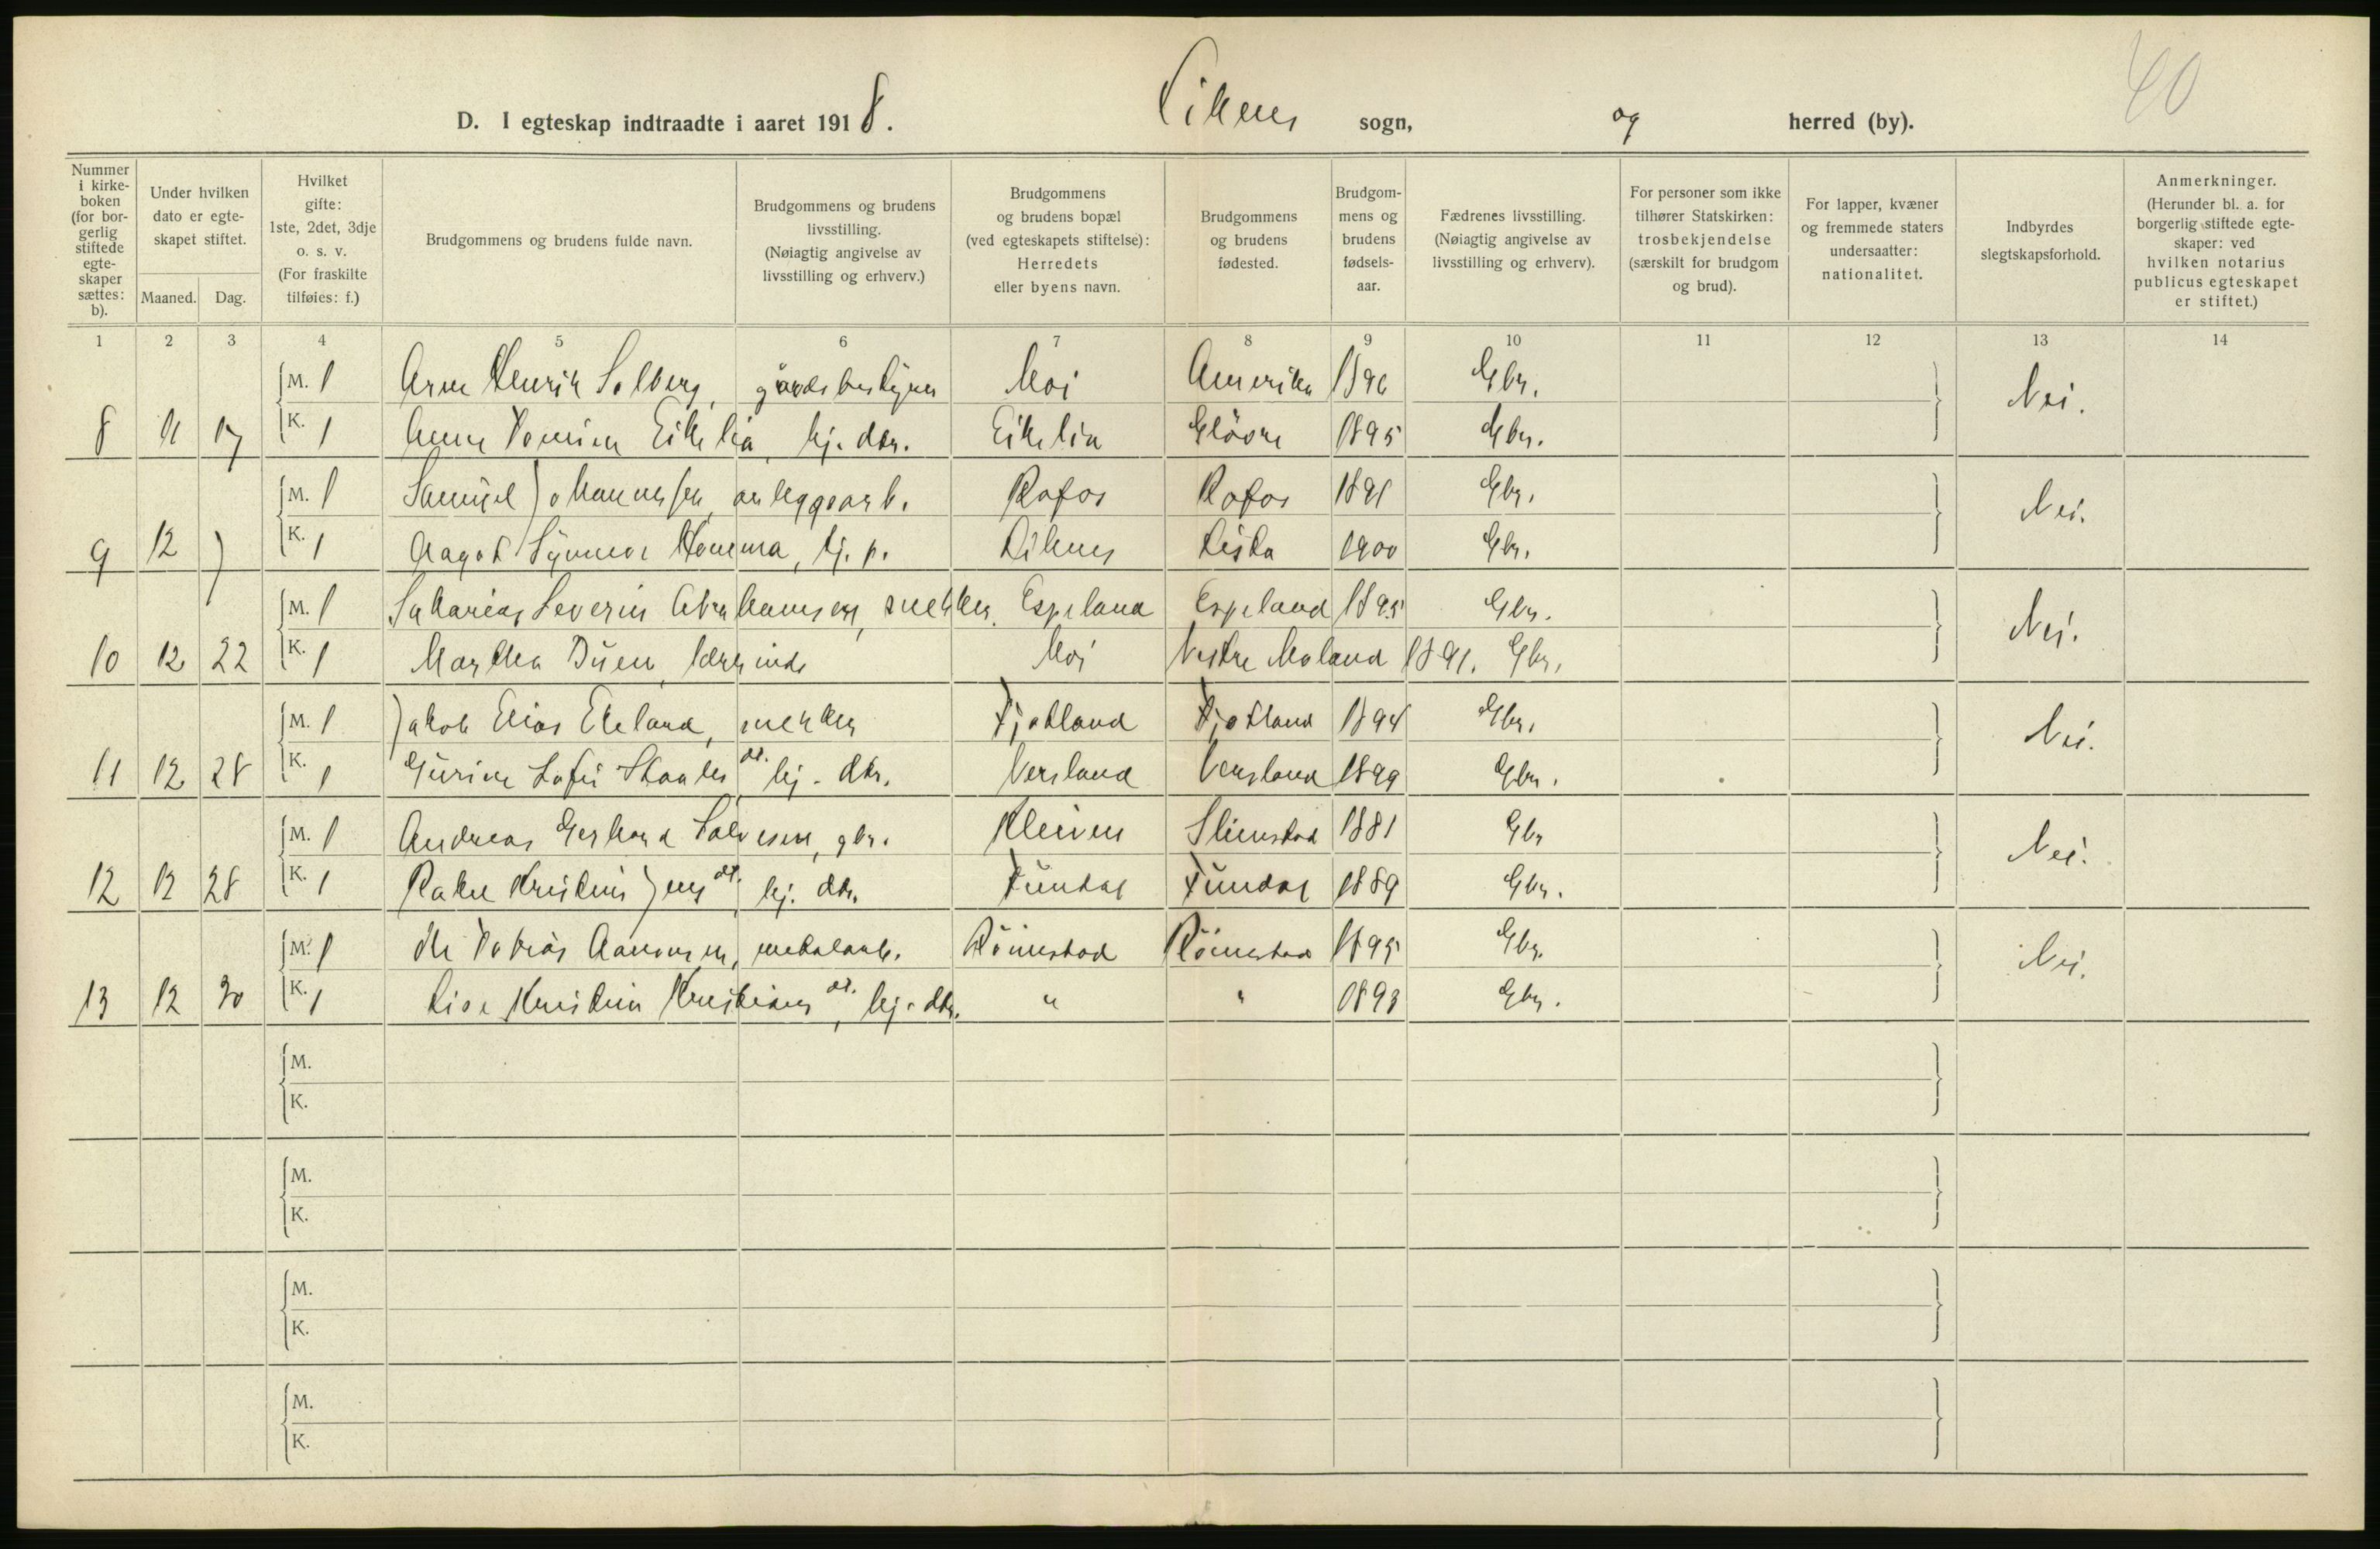 40
D. I egteskap indtraadte i aaret 1918. Liknes sogn, og herred (by).
Nummer i kirkeboken (for borgerlig stiftede egteskaper sættes: b).
Under hvilken dato er egteskapet stiftet.
Maaned. Dag.
Hvilket gifte: 1ste, 2det, 3dje o. s. v. (For fraskilte tilføies: f.)
Brudgommens og brudens fulde navn.
Brudgommens og brudens livsstilling. (Nøiagtig angivelse av livsstilling og erhverv.)
Brudgommens og brudens bopæl (ved egteskapets stiftelse): Herredets eller byens navn.
Brudgommens og brudens fødested.
Brudgommens og brudens fødselsaar.
Fædrenes livsstilling. (Nøiagtig angivelse av livsstilling og erhverv).
For personer som ikke tilhører Statskirken: trosbekjendelse (særskilt for brudgom og brud).
For lapper, kvæner og fremmede staters undersaatter: nationalitet.
Indbyrdes slegtskapsforhold.
Anmerkninger. (Herunder bl. a. for borgerlig stiftede egteskaper: ved hvilken notarius publicus egteskapet er stiftet.)
1 2 3 4 5 6 7 8 9 10 11 12 13 14
M. 1 Arne Henrik Solberg, gårdsbestyrer Moi Amerika 1896 Gbr. Nei.
8 11 17 K. 1 Anne Eikelia, hj. dtr. Eikelia Gløvre 1895 Gbr.
M. 1 Samuel Johannessen, anleggsarb. Rafos Rafos 1891 Gbr. Nei.
9 12 7 K. 1 Aagot Synnøve Homma, tj. p. Liknes Lista 1900 Gbr.
M. 1 Sakarias Severin Abrahamsen, snekker. Espeland Espeland 1895 Gbr. Nei.
10 12 22 K. 1 Martha Duen, lærerinde Moi Vestre Moland 1891. Gbr.
M. 1 Jakob Elias Eieland, snekker Fjotland Fjotland 1894 Gbr. Nei.
11 12 28 K. 1 Gurine Sofie dt. hj. dtr. Versland Versland 1899 Gbr.
M. 1 Andreas Gerhard Salvesen, gbr. Kleiven Slimstad 1881 Gbr Nei.
12 12 28 K. 1 Rakel Kristine Jens dt. hj. dtr. 1889 Gbr.
M. 1 Ole Tobias Aanonsen, metalarb. Röinestad Röinestad 1895 Gbr. Nei.
13 12 30 K. 1 Lise Kristine Kristians dt., hj. dtr. " " 1893 Gbr.
M.
K.
M.
K.
M.
K.
M.
K.